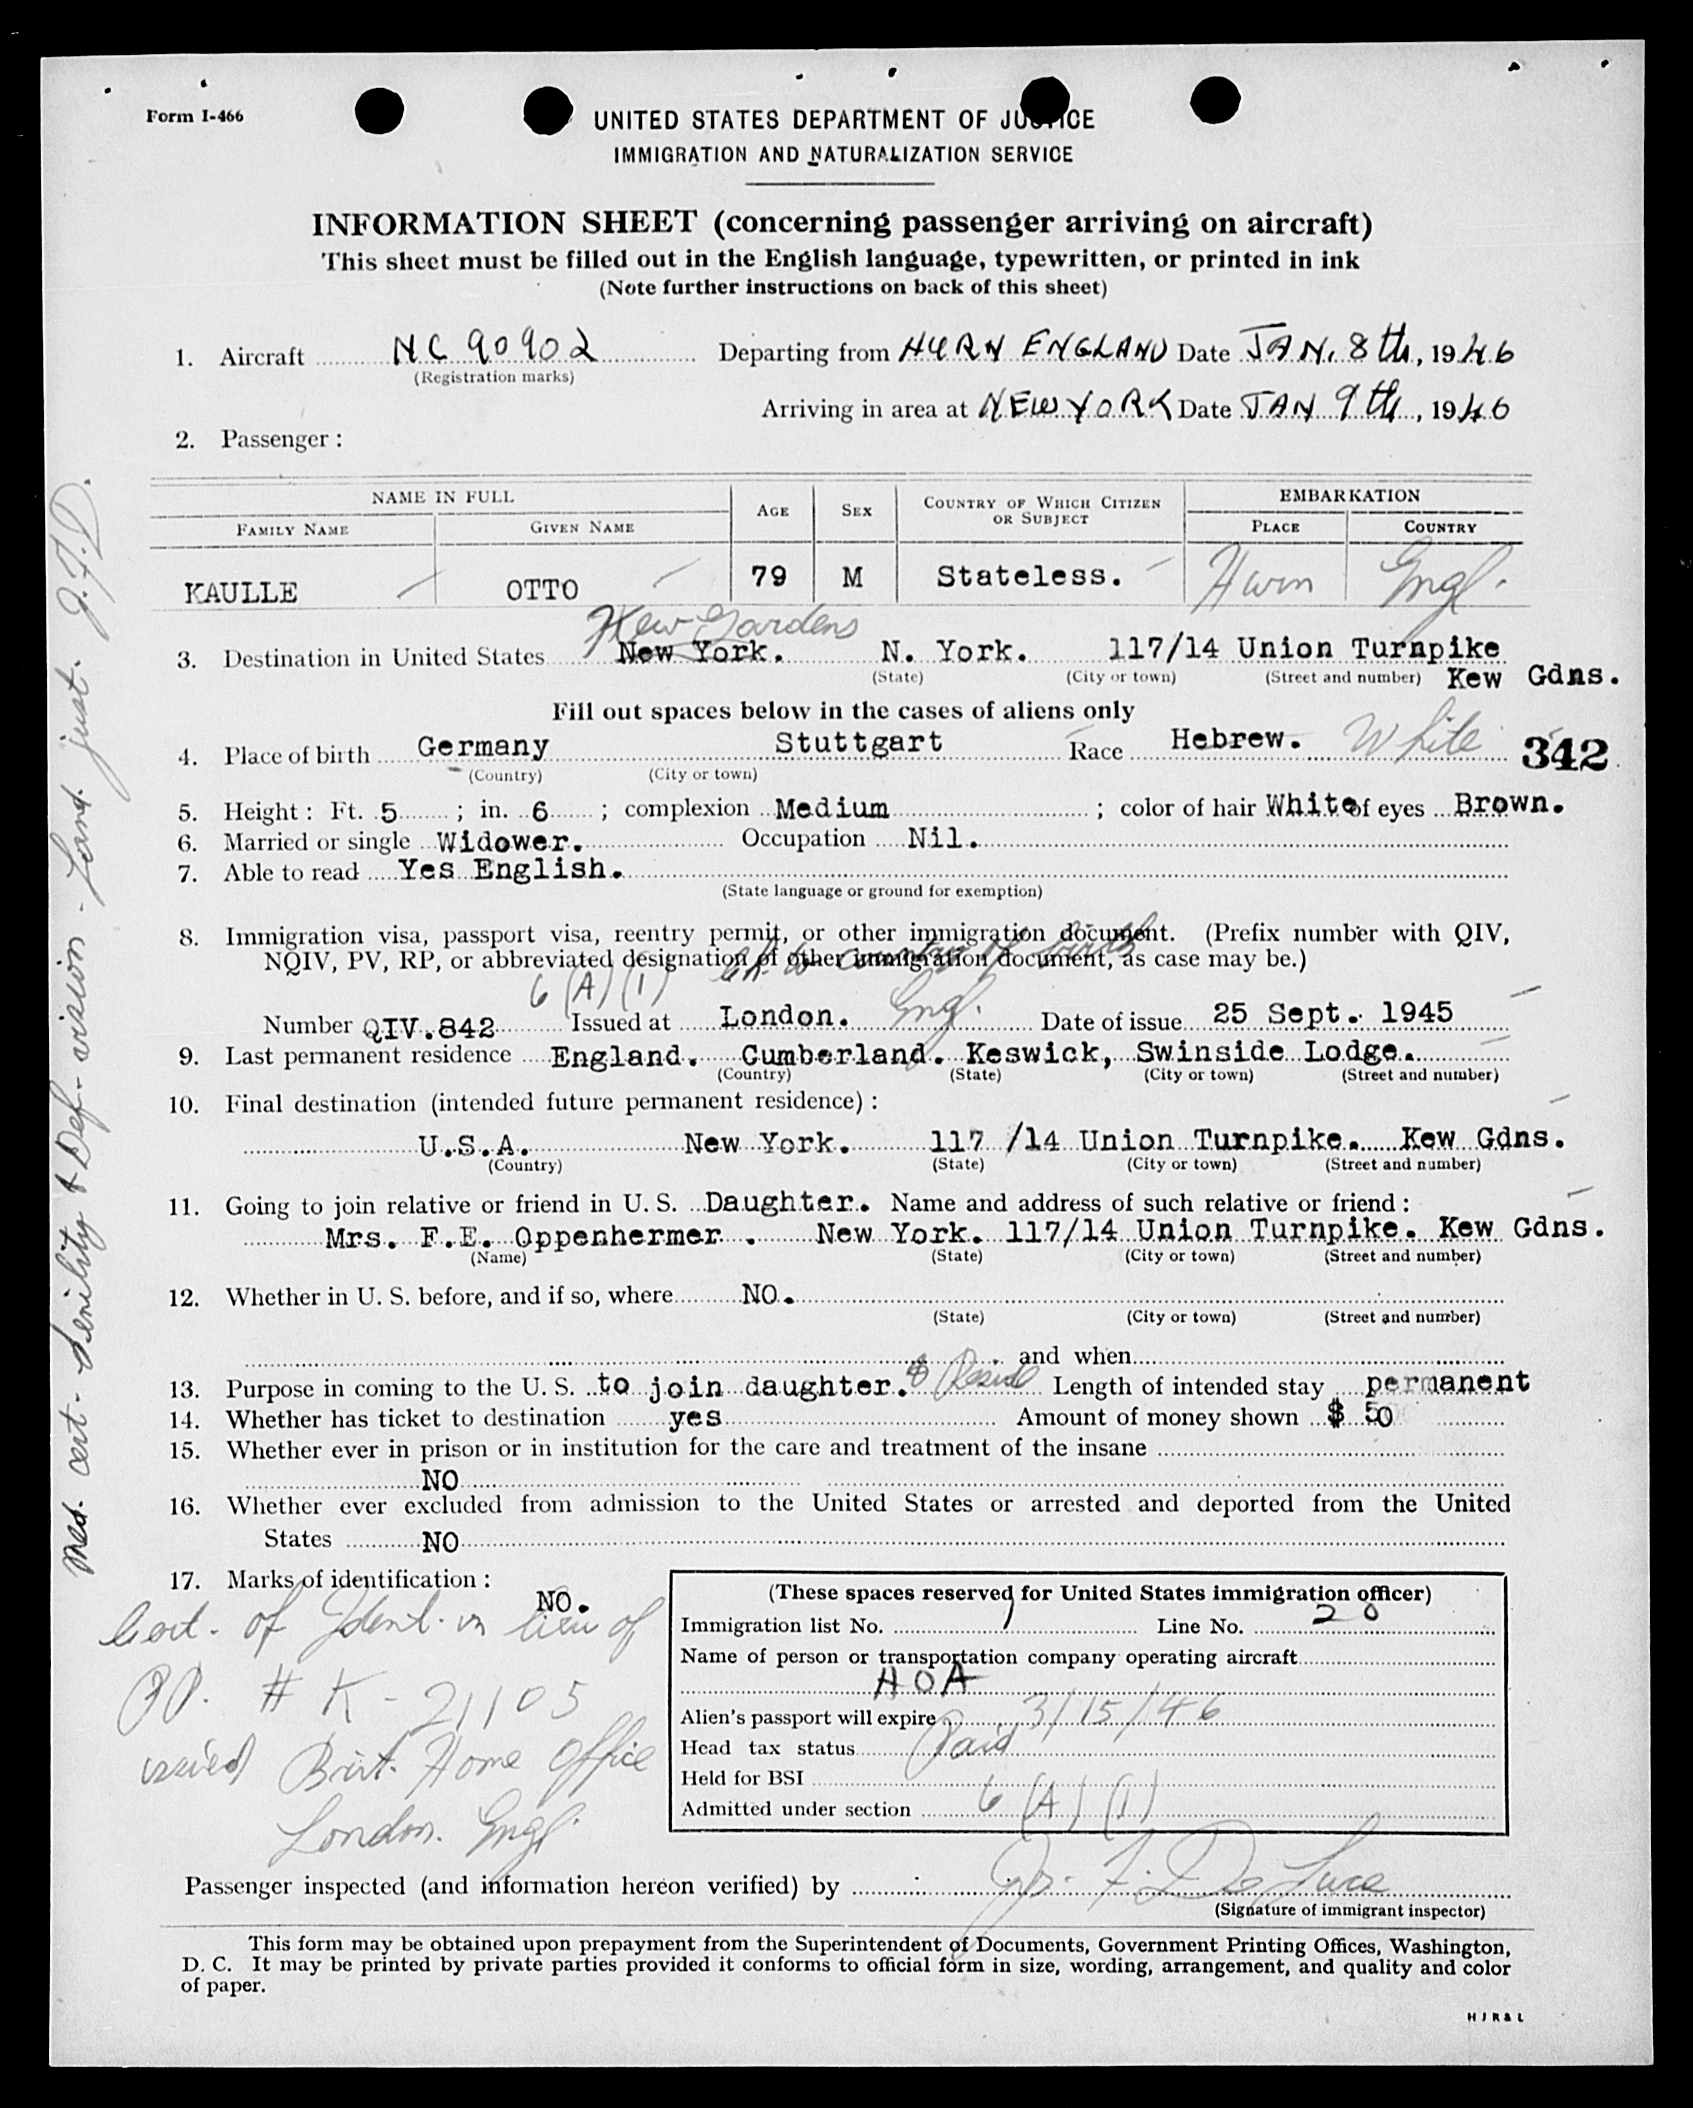 Form I-466
UNITED STATES DEPARTMENT OF JUSTICE
IMMIGRATION AND NATURALIZATION SERVICE
INFORMATION SHEET (concerning passenger arriving on aircraft)
This sheet must be filled out in the English language, typewritten, or printed in ink
(Note further instructions on back of this sheet)
1. Aircraft NC 90902 Departing from HURN ENGLAND Date JAN. 8th, 1946
(Registration marks)
Arriving in area at NEW YORK Date JAN 9th, 1946
2. Passenger :
NAME IN FULL AGE SEX COUNTRY OF WHICH CITIZEN OR SUBJECT EMBARKATION
FAMILY NAME GIVEN NAME PLACE COUNTRY
KAULLE OTTO 79 M Stateless. Hurn Engl.
Kew Gardens
3. Destination in United States New York. N. York. 117/14 Union Turnpike
(State) (City or town) (Street and number) Kew Gdns.
Fill out spaces below in the cases of aliens only
4. Place of birth Germany Stuttgart Race Hebrew. White 342
(Country) (City or town)
5. Height : Ft. 5 ; in. 6 ; complexion Medium ; color of hair White of eyes Brown.
6. Married or single Widower. Occupation Nil.
7. Able to read Yes English.
(State language or ground for exemption)
8. Immigration visa, passport visa, reentry permit, or other immigration document. (Prefix number with QIV,
NQIV, PV, RP, or abbreviated designation of other immigration document, as case may be.)
6 (A) (1) ch. to country of birth
Number QIV.842 Issued at London. Engl. Date of issue 25 Sept. 1945
9. Last permanent residence England. Cumberland. Keswick, Swinside Lodge.
(Country) (State) (City or town) (Street and number)
10. Final destination (intended future permanent residence) :
U.S.A. New York. 117 /14 Union Turnpike. Kew Gdns.
(Country) (State) (City or town) (Street and number)
11. Going to join relative or friend in U. S. Daughter. Name and address of such relative or friend :
Mrs. F.E. Oppenhermer . New York. 117/14 Union Turnpike. Kew Gdns.
(Name) (State) (City or town) (Street and number)
12. Whether in U. S. before, and if so, where NO.
(State) (City or town) (Street and number)
and when
13. Purpose in coming to the U. S. to join daughter. & Reside Length of intended stay permanent
14. Whether has ticket to destination yes Amount of money shown $ 50
15. Whether ever in prison or in institution for the care and treatment of the insane
NO
16. Whether ever excluded from admission to the United States or arrested and deported from the United
States NO
17. Marks of identification :
NO.
Cert. of Ident. in lieu of
PP. # K-21105
issued Brit. Home Office
London. Engl.
(These spaces reserved for United States immigration officer)
Immigration list No. 1 Line No. 20
Name of person or transportation company operating aircraft
AOA
Alien's passport will expire 3/15/46
Head tax status Paid
Held for BSI
Admitted under section 6 (A) (1)
Passenger inspected (and information hereon verified) by Jos. F. De Luca
(Signature of immigrant inspector)
This form may be obtained upon prepayment from the Superintendent of Documents, Government Printing Offices, Washington,
D. C. It may be printed by private parties provided it conforms to official form in size, wording, arrangement, and quality and color
of paper.
H J R & L
Med. cert. - Senility & Def. vision - Land. just. J.F.D.